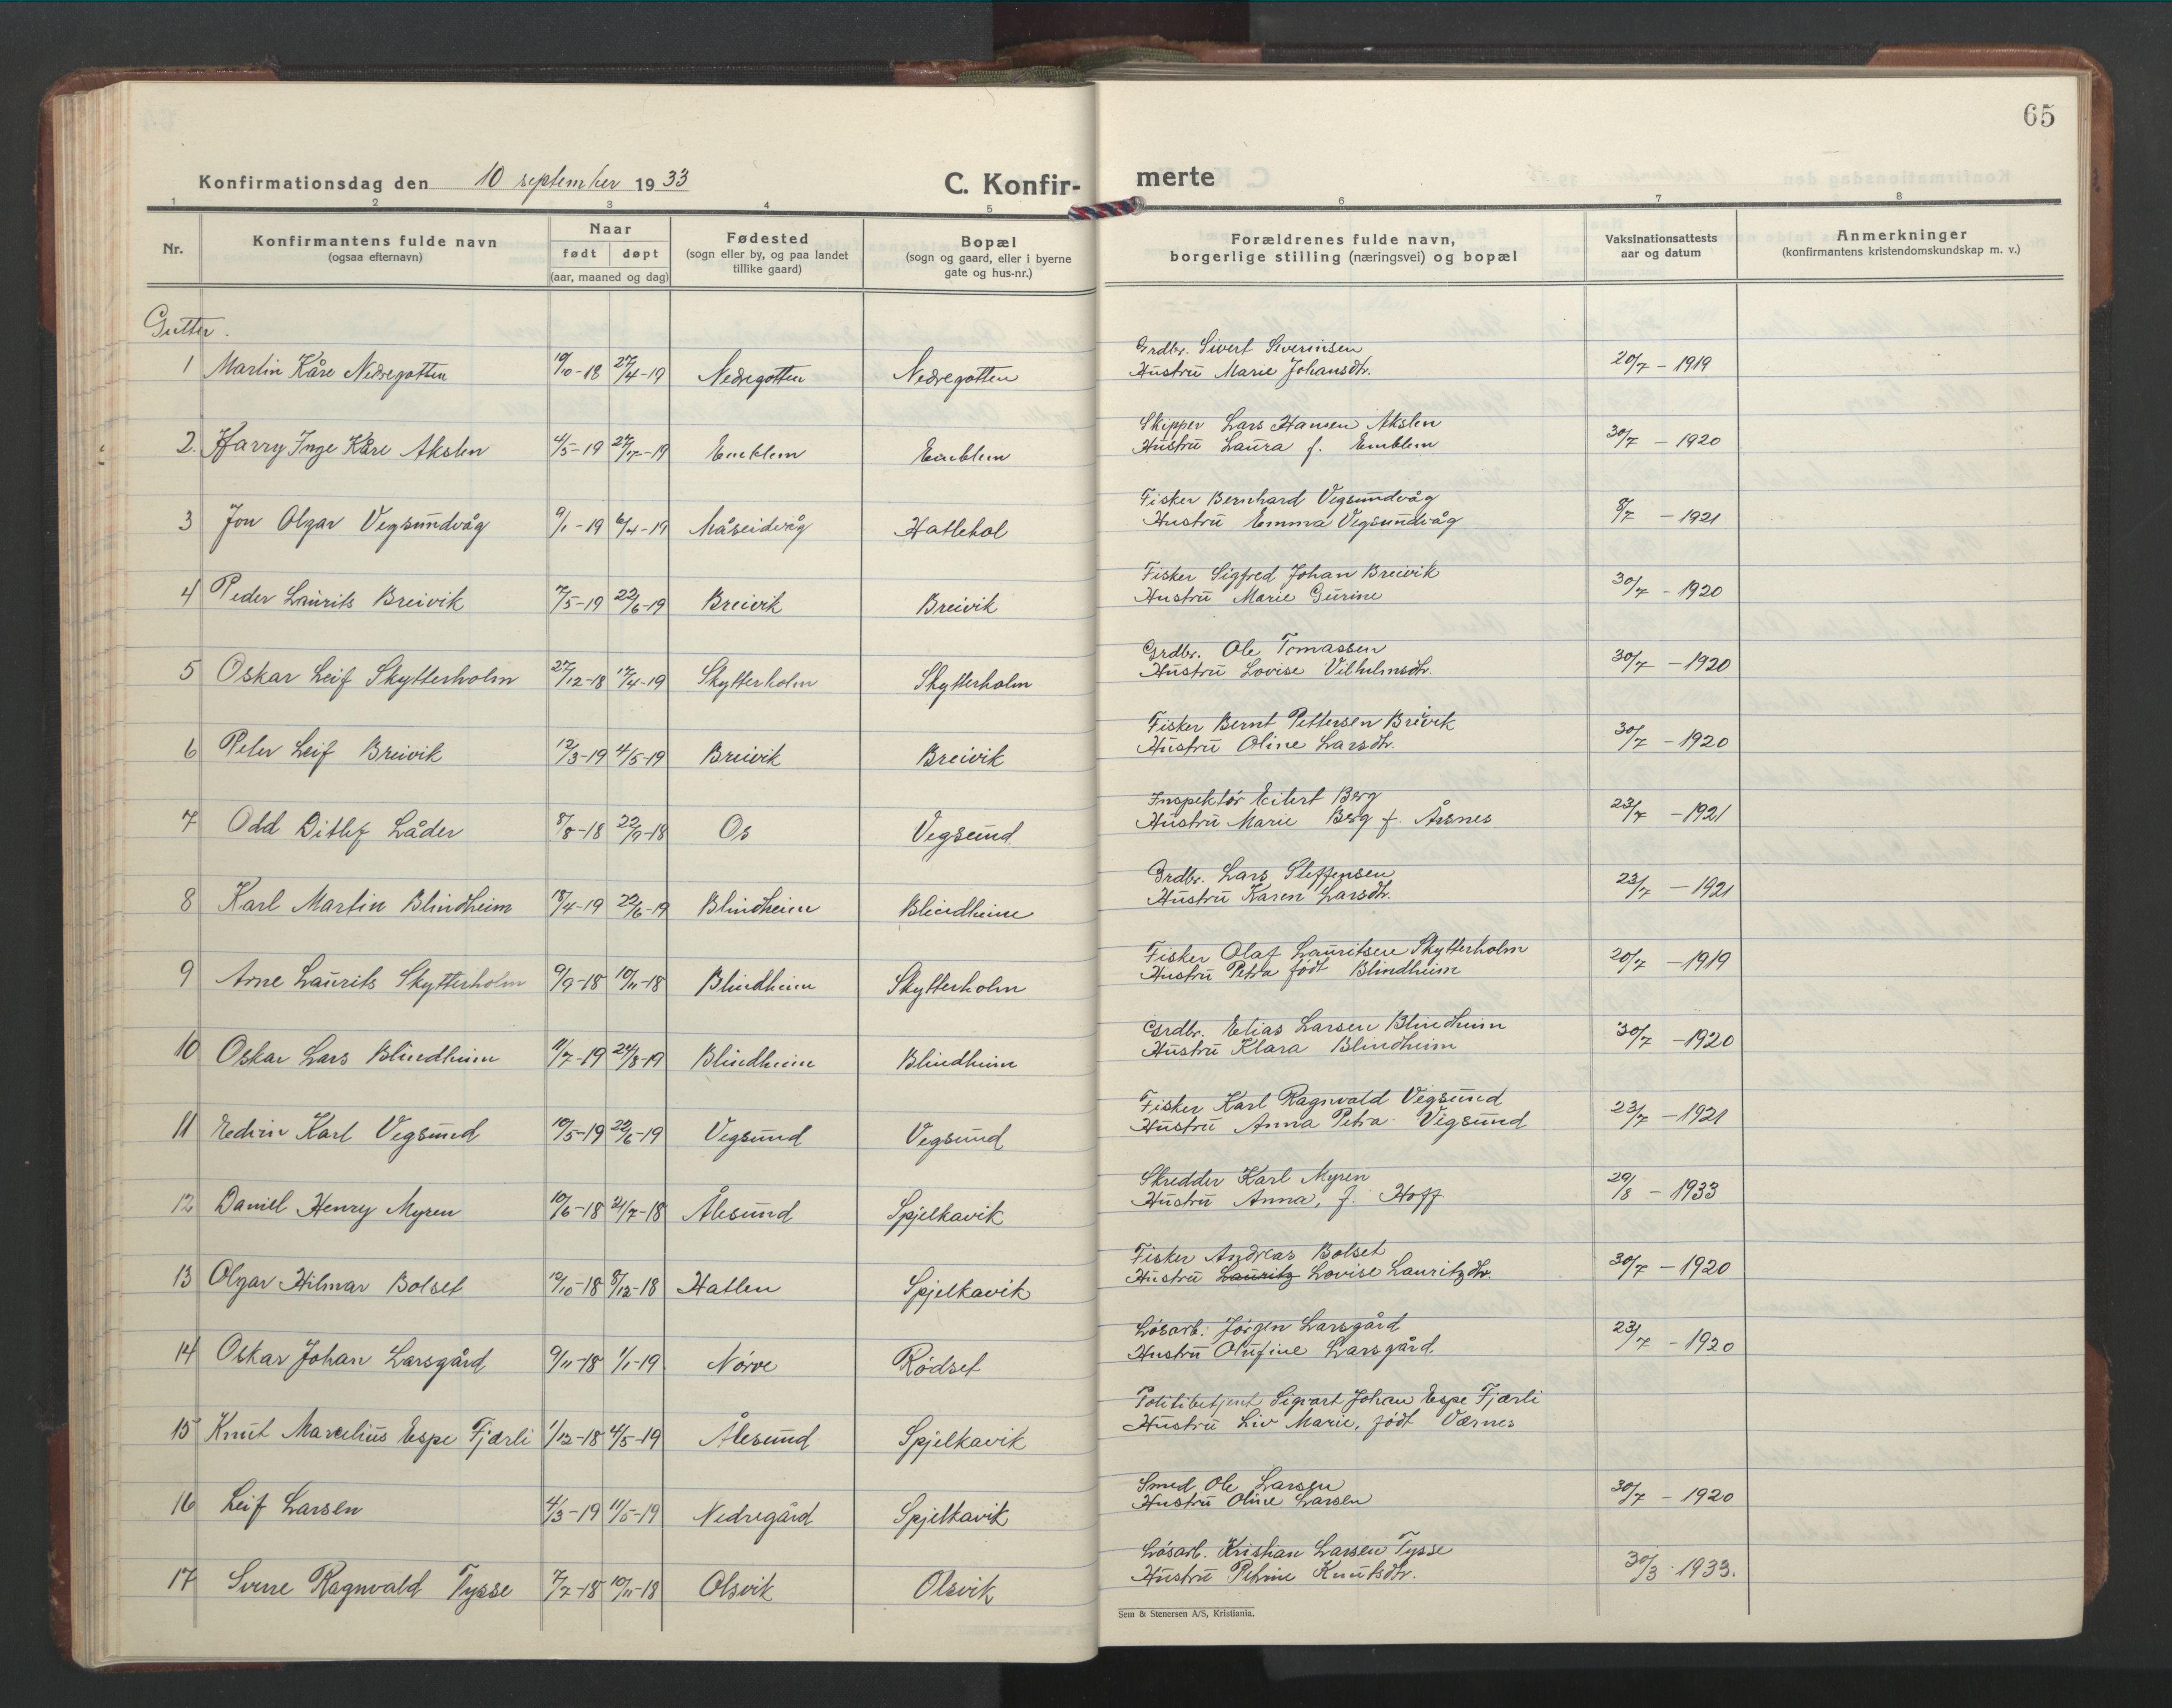 65
Konfirmationsdag den 10 september 1933
C. Konfir-
merte
1 2 3 4 5 6 7 8
Nr.
Konfirmantens fulde navn
(ogsaa efternavn)
Naar
født døpt
(aar, maaned og dag)
Fødested
(sogn eller by, og paa landet
tillike gaard)
Bopæl
(sogn og gaard, eller i byerne
gate og hus-nr.)
Forældrenes fulde navn,
borgerlige stilling (næringsvei) og bopæl
Vaksinationsattests
aar og datum
Anmerkninger
(konfirmantens kristendomskundskap m. v.)
Gutter.
1 Martin Kåre Nedregotten 19/10-18 27/4-19 Nedregotten Nedregotten
Grdbr. Sivert Severinsen
Hustru Marie Johansdtr. 20/7 - 1919
2. Harry Inge Kåre Akslen 4/5-19 27/7-19 Emblem Emblem
Skipper Lars Hansen Akslen
Hustru Laura f. Emblem 30/7 - 1920
3 Jon Olgar Vegsundvåg 9/1-19 6/4-19 Måseidvåg Hatlehol
Fisker Bernhard Vegsundvåg
Hustru Emma Vegsundvåg 8/7 - 1921
4 Peder Laurits Breivik 7/5-19 22/6-19 Breivik Breivik
Fisker Sigfred Johan Breivik
Hustru Marie Gurine 30/7 - 1920
5 Oskar Leif Skytterholm 27/12-18 17/4-19 Skytterholm Skytterholm
Grdbr. Ole Tomassen
Hustru Lovise Vilhelmsdtr. 30/7 - 1920
6 Peter Leif Breivik 12/3-19 4/5-19 Breivik Breivik
Fisker Bernt Pettersen Breivik
Hustru Oline Larsdtr. 30/7 - 1920
7 Odd Ditlef Låder 8/8-18 22/9-18 Os Vegsund
Inspektør Eilert Berg
Hustru Marie Berg f. Årsnes 23/7 - 1921
8 Karl Martin Blindheim 18/4-19 22/6-19 Blindheim Blindheim
Grdbr. Lars Steffensen
Hustru Karen Larsdtr. 23/7 - 1921
9 Arne Laurits Skytterholm 9/9-18 10/11-18 Blindheim Skytterholm
Fisker Olaf Lauritsen Skytterholm
Hustru Petra født Blindheim 20/7 - 1919
10 Oskar Lars Blindheim 11/7-19 24/8-19 Blindheim Blindheim
Grdbr. Elias Larsen Blindheim
Hustru Klara Blindheim 30/7 - 1920
11 Edvin Karl Vegsund 10/5-19 22/6-19 Vegsund Vegsund
Fisker Karl Ragnvald Vegsund
Hustru Anna Petra Vegsund 23/7 - 1921
12 Daniel Henry Myren 10/6-18 21/7-18 Ålesund Spjelkavik
Skredder Karl Myren
Hustru Anna, f. Hoff 29/8 - 1933
13 Olgar Hilmar Bolset 12/10-18 8/12-18 Hatlen Spjelkavik
Fisker Andreas Bolset
Hustru Lauritz Lovise Lauritzdtr. 30/7 - 1920
14 Oskar Johan Larsgård 9/11-18 1/1-19 Nørve Rødset
Løsarb. Jørgen Larsgård
Hustru Olufine Larsgård. 23/7 - 1920
15 Knut Marcelius Espe Fjærli 1/12-18 4/5-19 Ålesund Spjelkavik
Politibetjent Sigvart Johan Espe Fjærli
Hustru Liv Marie, født Værnes
16 Leif Larsen 4/3-19 11/5-19 Nedregård Spjelkavik
Smed Ole Larsen
Hustru Oline Larsen 30/7 - 1920
17 Sverre Ragnvald Tysse 7/7-18 10/11-18 Olsvik Olsvik
Løsarb. Kristian Larsen Tysse
Hustru Petrine Knutsdtr. 30/3 1933.
Sem & Stenersen A/S, Kristiania.